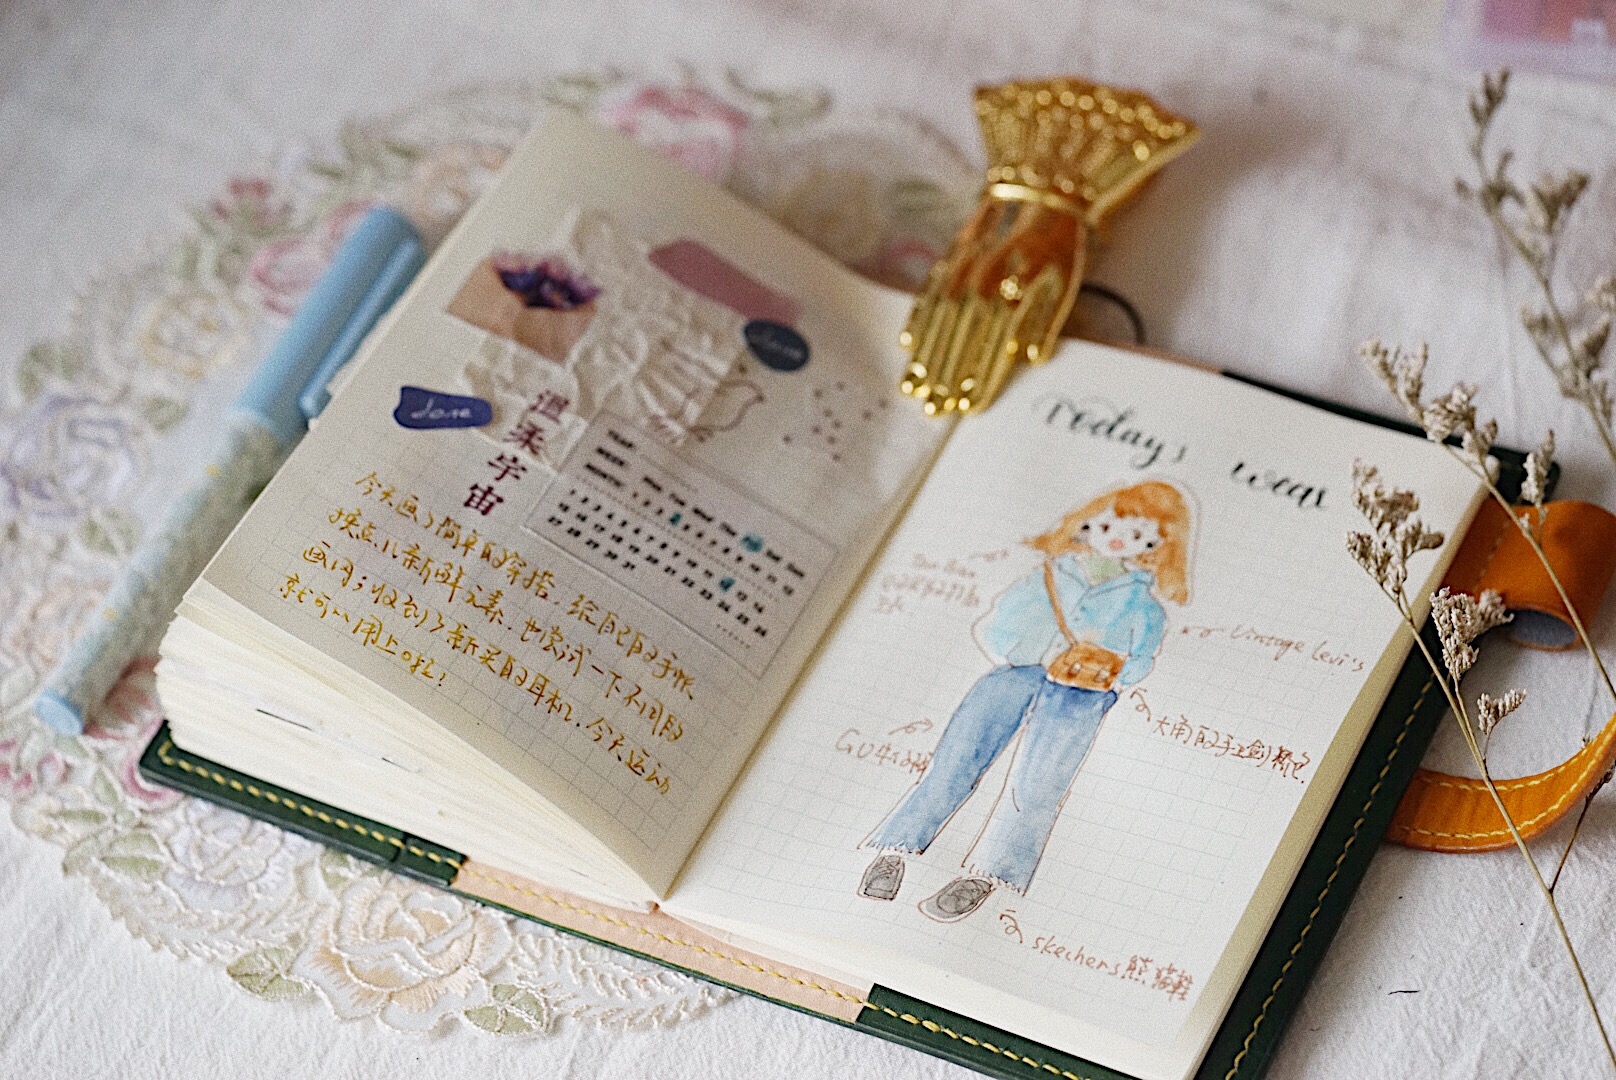 June
温柔宇宙
YEAR:
WEEK:
MONTH:
今天画了简单的穿搭，给自己的手帐
换点儿新鲜元素，也尝试一下不同的
画风；收到了新买的耳机，今天运动
就可以用上啦！
Today's wear
Vintage Levi's
GU牛仔裤
大南的手工剑桥包.
skechers熊猫鞋